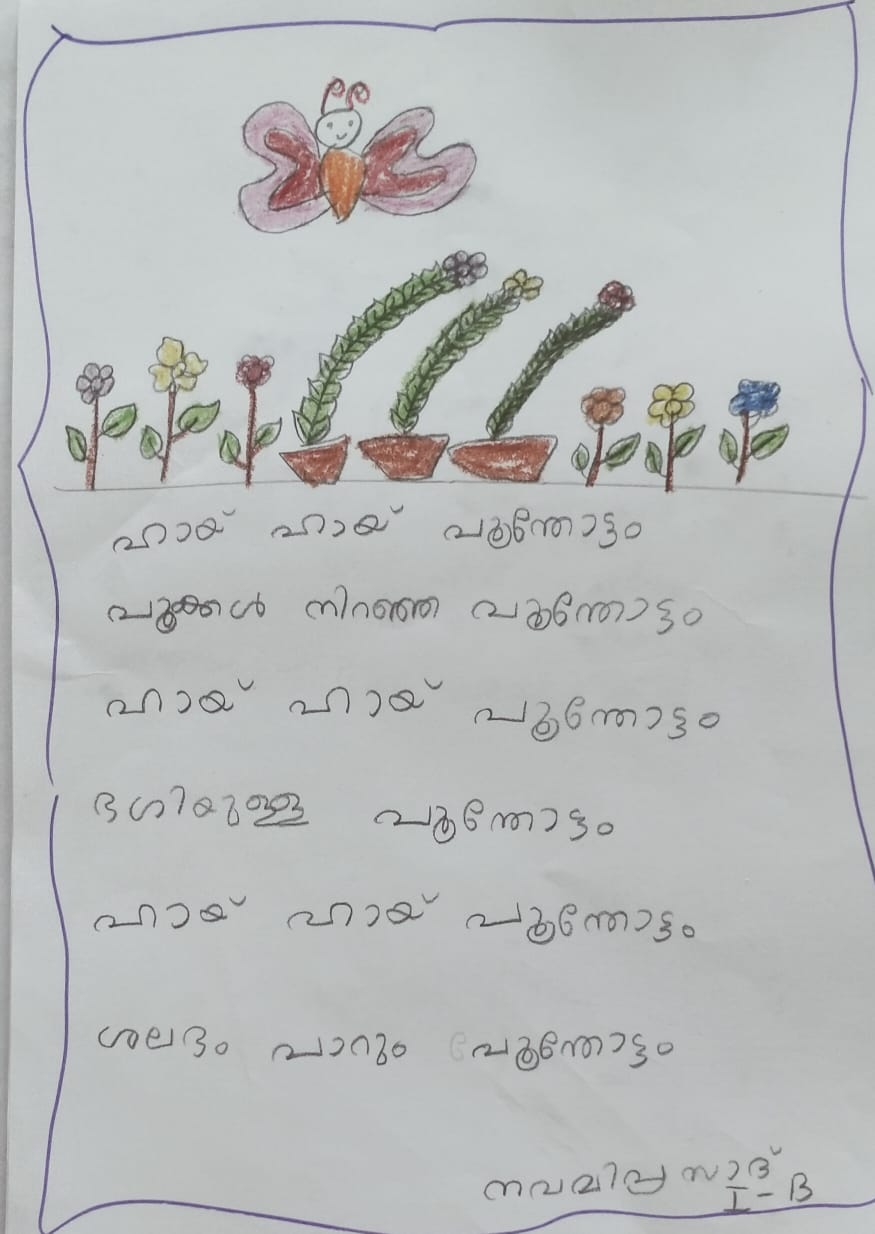 ഹായ് ഹായ് പൂന്തോട്ടം
പൂക്കൾ നിറഞ്ഞ പൂന്തോട്ടം
ഹായ് ഹായ് പൂന്തോട്ടം
ഭഗിയുള്ള പൂന്തോട്ടം
ഹായ് ഹായ് പൂന്തോട്ടം
ശലഭം പാറും പൂന്തോട്ടം
I - B